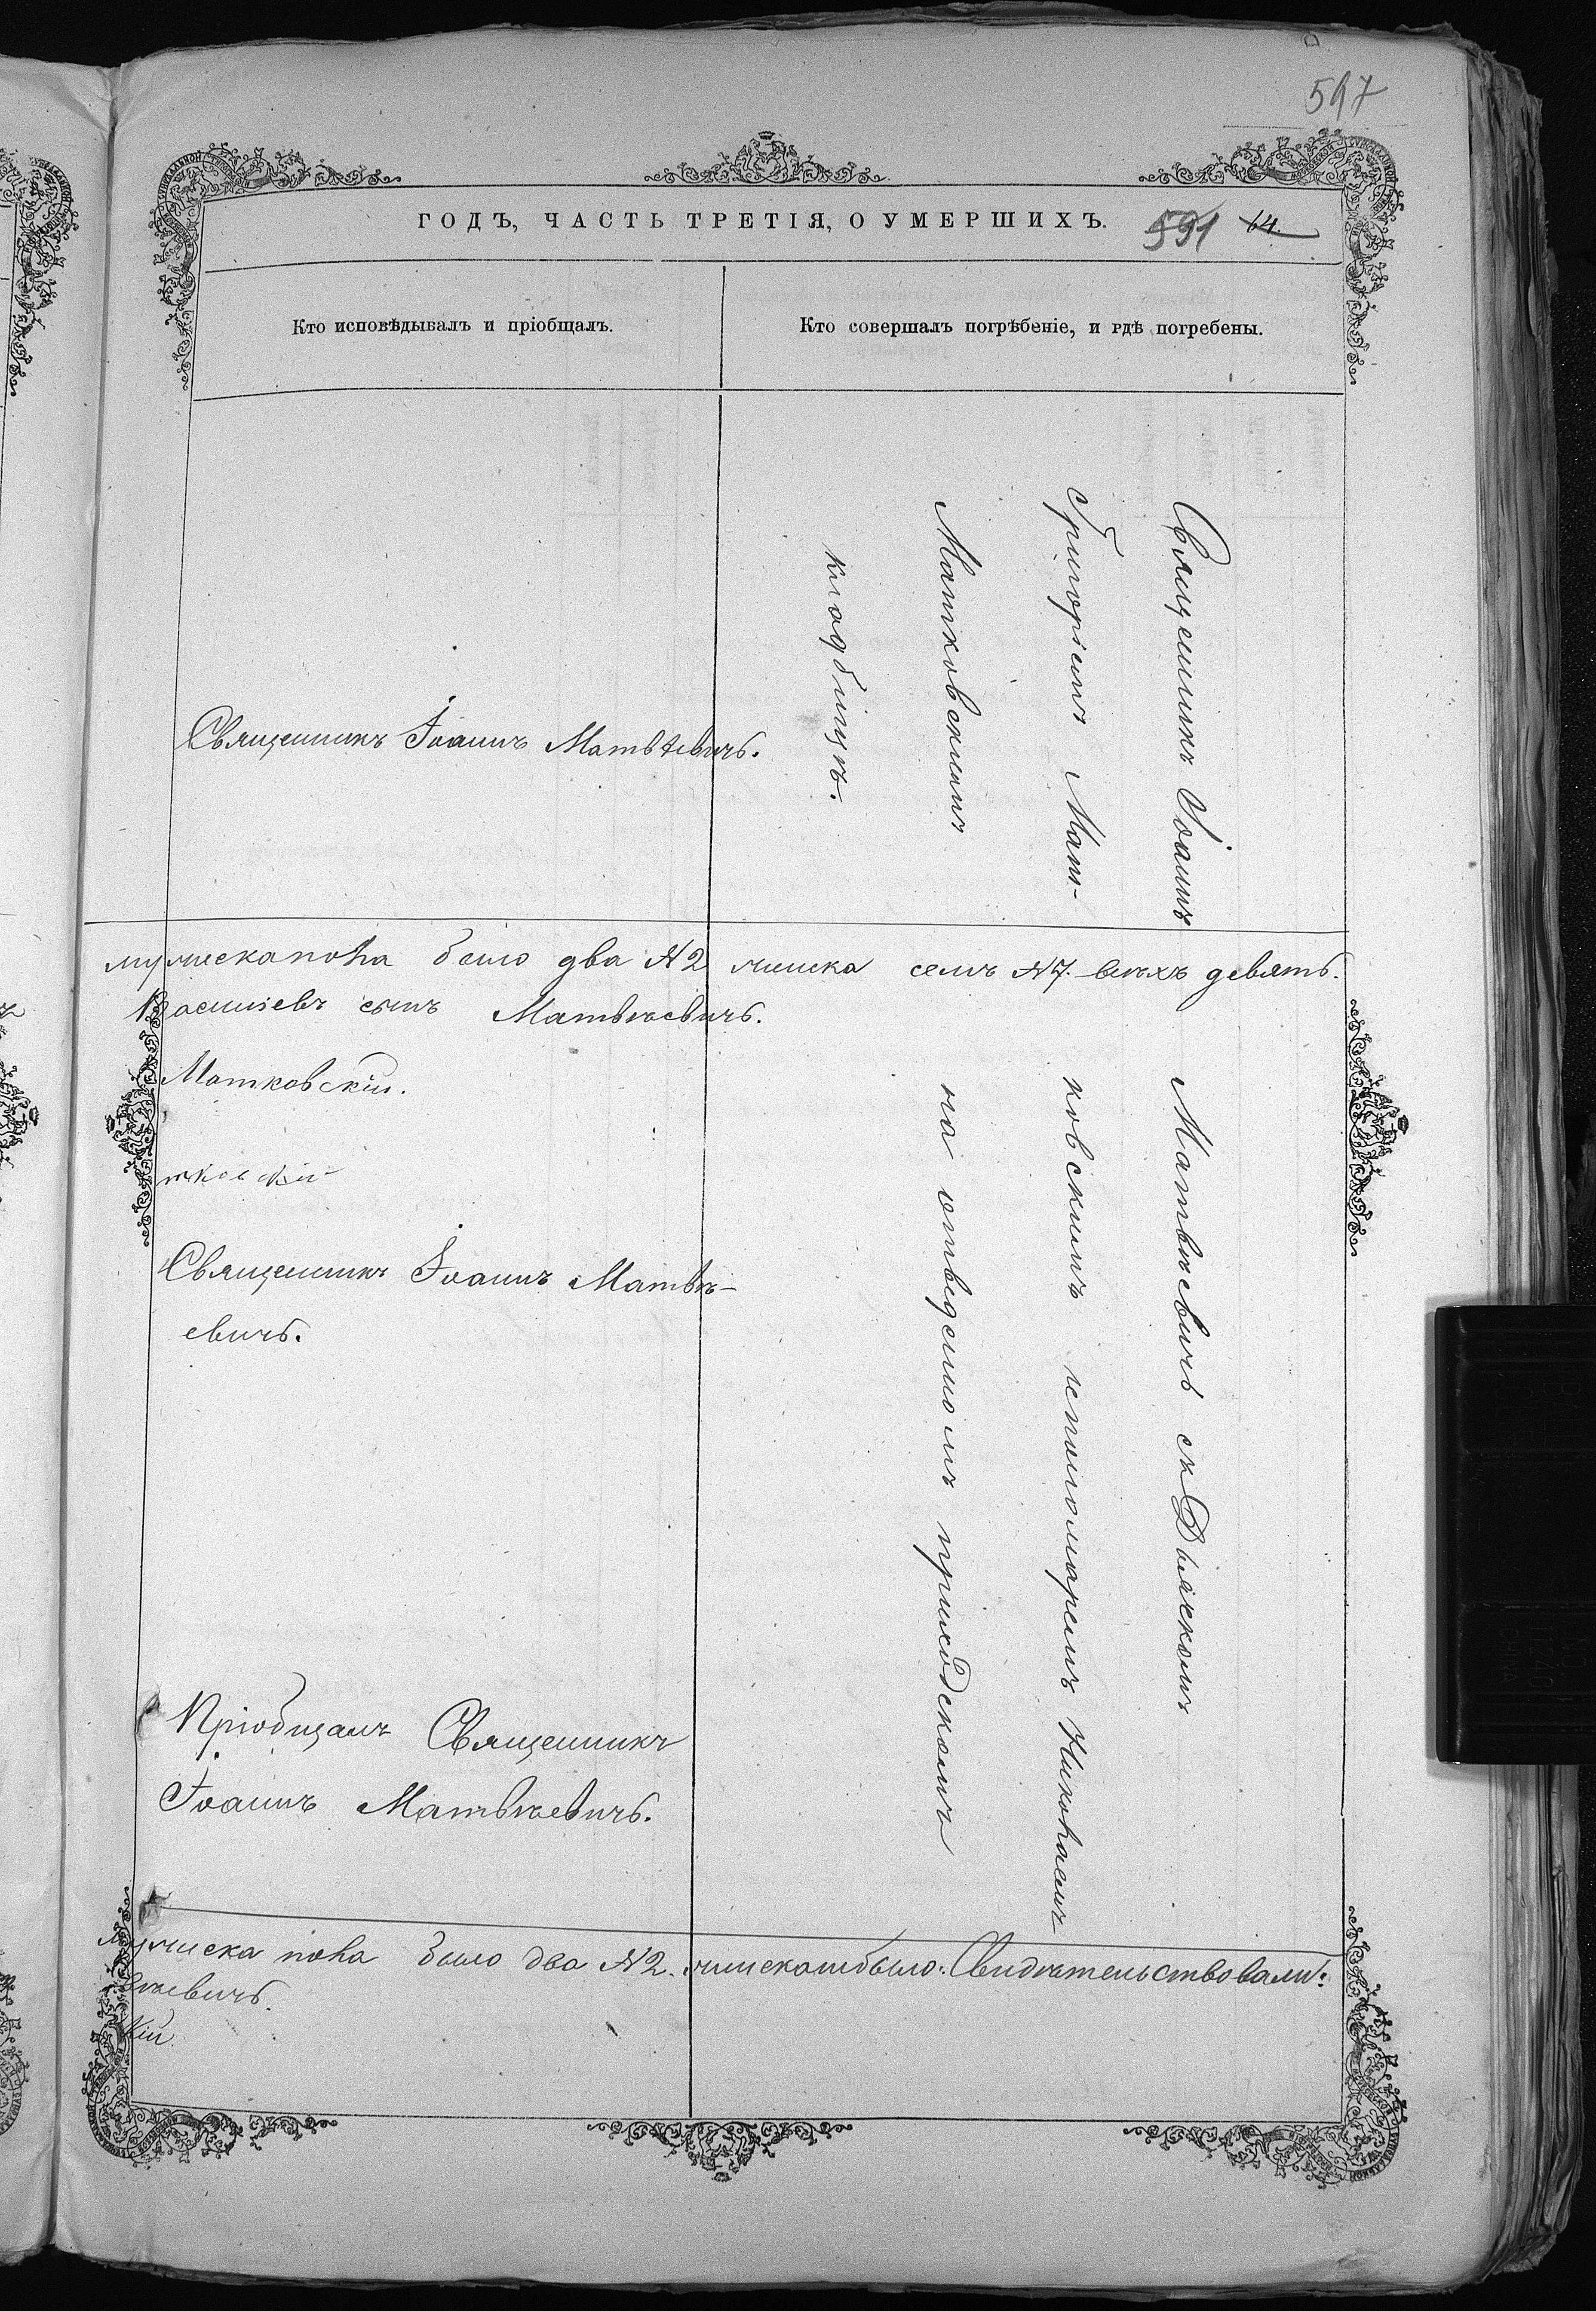 597
ГОДЪ, ЧАСТЬ ТРЕТІЯ, О УМЕРШИХЪ.
591 64.
Кто исповѣдывалъ и пріобщалъ.
Кто совершалъ погрѣбеніе, и гдѣ погребены.
Священникъ Іоаннъ Матвѣевичъ.
Священникъ Іоаннъ
Григоріемъ Мат-
Матковскимъ
кладбищѣ.
мужеска пола было два №2 женска семь №7. всѣхъ девять.
Василіевъ сынъ Матвѣевичъ.
Матковскій.
тковскій
Священникъ Іоаннъ Матвѣ-
евичъ.
Пріобщалъ Священникъ
Іоаннъ Матвѣевичъ.
Матвѣевичъ съ Дьячкомъ
ковскимъ и пономаремъ Николаемъ
на отведенномъ приходскомъ
мужеска пола было два №2. женска не было. Свидѣтельствовали:
вѣевичъ.
кій.